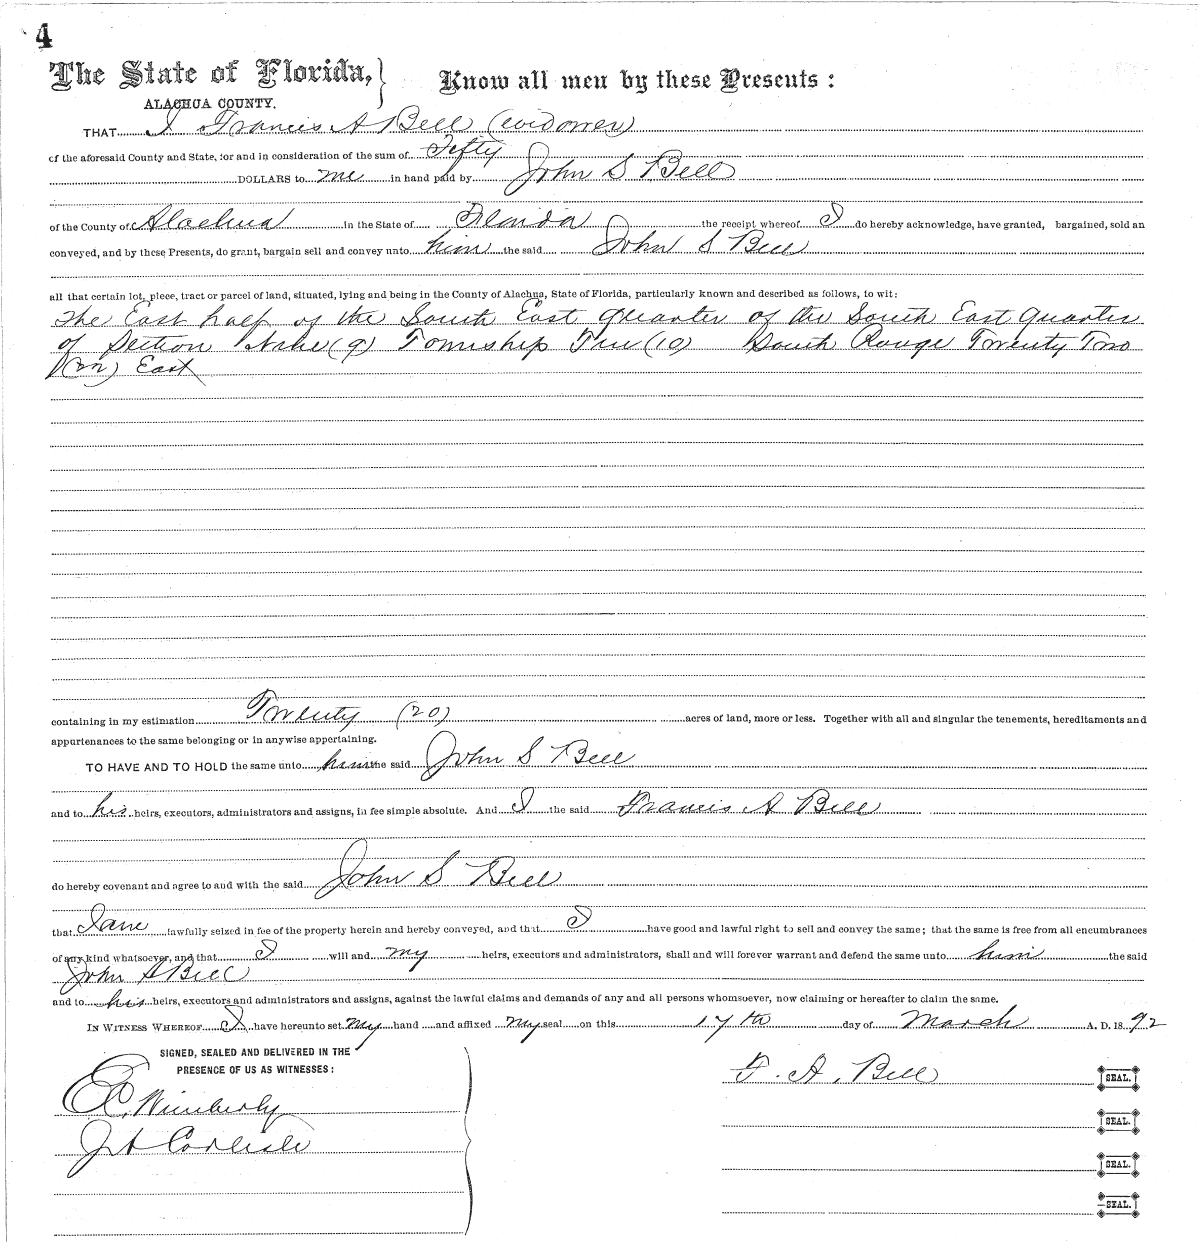 4
The State of Florida, } Know all men by these Presents :
ALACHUA COUNTY.
THAT I Francis A Bell (widower)
of the aforesaid County and State, for and in consideration of the sum of Fifty
DOLLARS to me in hand paid by John S Bell
of the County of Alachua in the State of Florida the receipt whereof I do hereby acknowledge, have granted, bargained, sold an
conveyed, and by these Presents, do grant, bargain sell and convey unto him the said John S Bell
all that certain lot, piece, tract or parcel of land, situated, lying and being in the County of Alachua, State of Florida, particularly known and described as follows, to wit:
The East half of the South East quarter of the South East quarter
of Section Nine (9) Township Ten (10) South Range Twenty Two
(22) East
containing in my estimation Twenty (20) acres of land, more or less. Together with all and singular the tenements, hereditaments and
appurtenances to the same belonging or in anywise appertaining.
TO HAVE AND TO HOLD the same unto him the said John S Bell
and to his heirs, executors, administrators and assigns, in fee simple absolute. And I the said Francis A Bell
do hereby covenant and agree to and with the said John S Bell
that I am lawfully seized in fee of the property herein and hereby conveyed, and that I have good and lawful right to sell and convey the same; that the same is free from all encumbrances
of any kind whatsoever, and that I will and my heirs, executors and administrators, shall and will forever warrant and defend the same unto him the said
John S Bell
and to his heirs, executors and administrators and assigns, against the lawful claims and demands of any and all persons whomsoever, now claiming or hereafter to claim the same.
IN WITNESS WHEREOF I have hereunto set my hand and affixed my seal on this 17th day of March A. D. 1892
SIGNED, SEALED AND DELIVERED IN THE
PRESENCE OF US AS WITNESSES:
F. A. Bell SEAL.
Wimberly
SEAL.
Carlisle
SEAL.
SEAL.